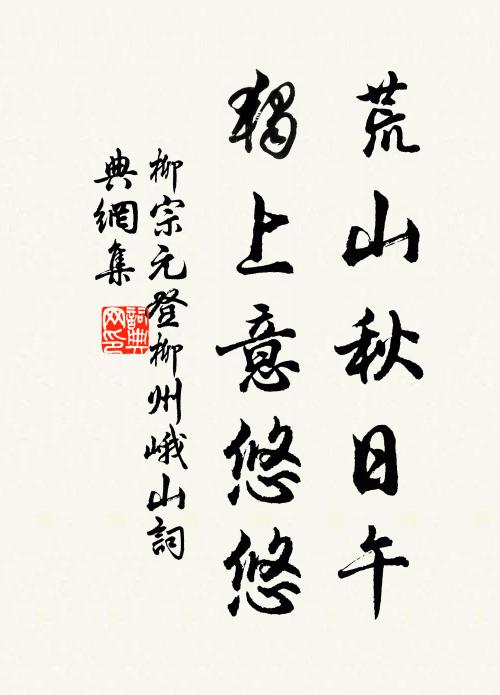 荒山秋日午
獨上意悠悠
柳宗元登柳州峨山詞
典網集
詞典
网印